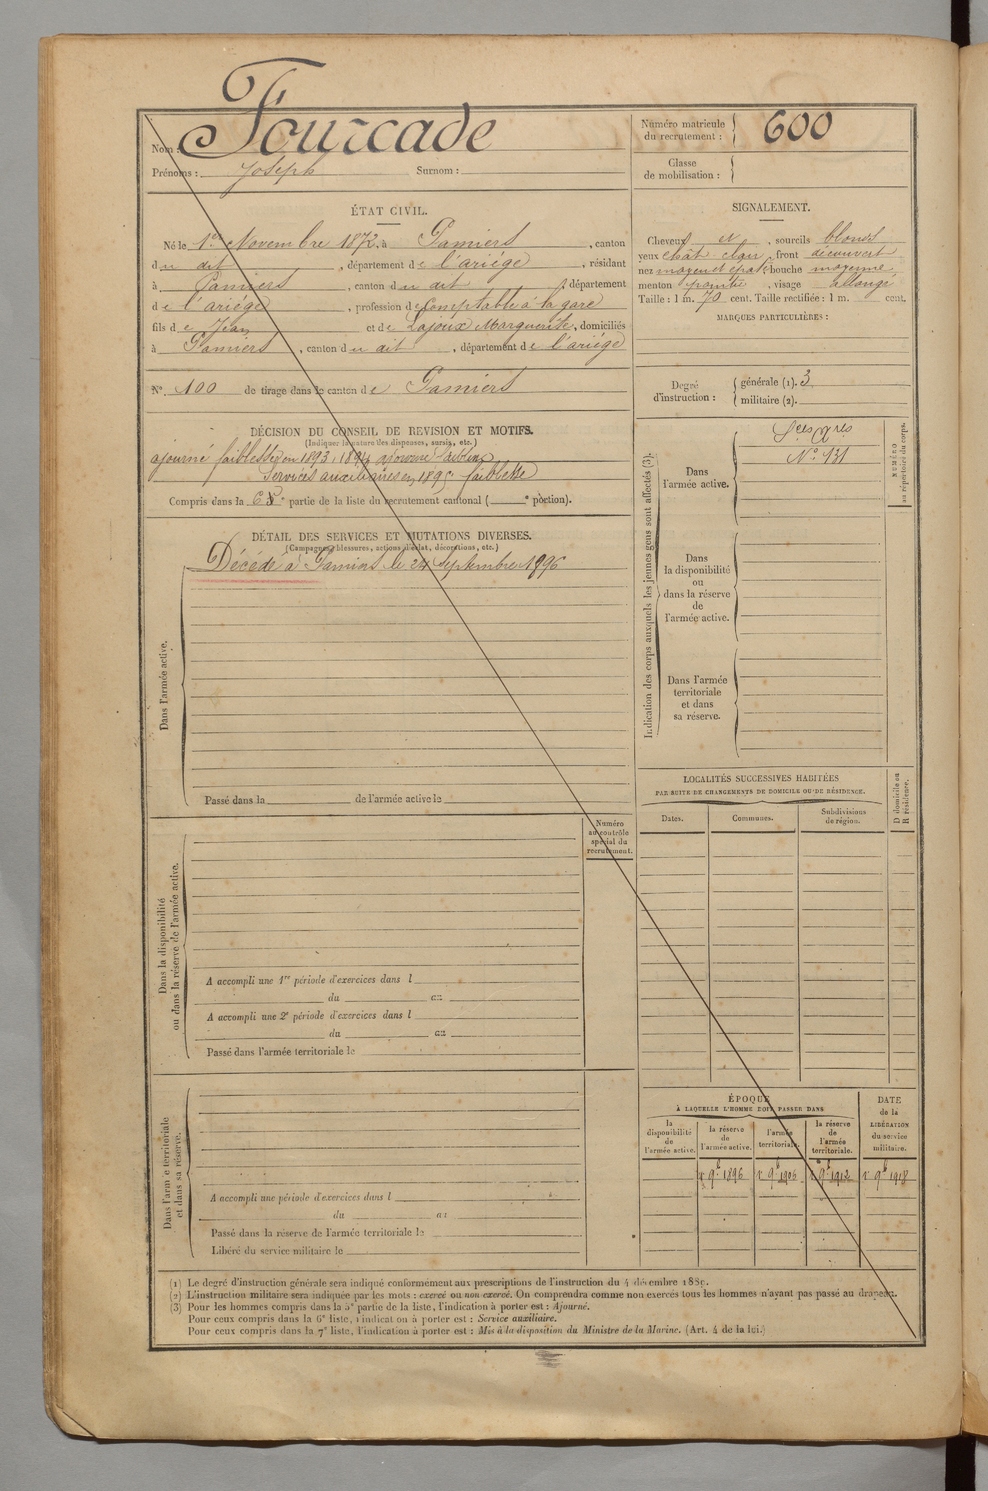 Nom : Fourcade
Prénoms : Joseph Surnom :
Numéro matricule du recrutement : 600
Classe de mobilisation :
ÉTAT CIVIL.
Né le 1er Novembre 1872, à Pamiers, canton
du dit, département de l'ariége, résidant
à Pamiers, canton du dit, département
de l'ariége, profession de Comptable à la gare
fils de Jean et de Lajoux Marguerite, domiciliés
à Pamiers, canton du dit, département de l'ariége
N° 100 de tirage dans le canton de Pamiers
SIGNALEMENT.
Cheveux et, sourcils blonds
yeux chât clair, front découvert
nez moyen et épaté bouche moyenne,
menton pointu, visage allongé
Taille : 1 m. 70 cent. Taille rectifiée : 1 m. cent.
MARQUES PARTICULIÈRES :
Degré d'instruction : générale (1). 3
militaire (2).
DÉCISION DU CONSEIL DE REVISION ET MOTIFS.
(Indiquer la nature des dispenses, sursis, etc.)
ajourné faiblesse en 1893, 1894 ajourné faiblesse
Services auxiliaires en 1895 faiblesse
Compris dans la 6e partie de la liste du recrutement cantonal ( e portion).
DÉTAIL DES SERVICES ET MUTATIONS DIVERSES.
(Campagnes, blessures, actions d'éclat, décorations, etc.)
Décédé à Pamiers le 24 Septembre 1896
Dans l'armée active.
Passé dans la de l'armée active le
Numéro au contrôle spécial du recrutement.
Dans la disponibilité ou dans la réserve de l'armée active.
A accompli une 1re période d'exercices dans l
du au
A accompli une 2e période d'exercices dans l
du au
Passé dans l'armée territoriale le
Dans l'armée territoriale et dans sa réserve.
A accompli une période d'exercices dans l
du au
Passé dans la réserve de l'armée territoriale le
Libéré du service militaire le
Indication des corps auxquels les jeunes gens sont affectés (3).
Dans l'armée active.
Sces Qres
N° 931
NUMÉRO au répertoire du corps.
Dans la disponibilité ou dans la réserve de l'armée active.
Dans l'armée territoriale et dans sa réserve.
LOCALITÉS SUCCESSIVES HABITÉES
PAR SUITE DE CHANGEMENTS DE DOMICILE OU DE RÉSIDENCE.
D domicile ou R résidence.
Dates. Communes. Subdivisions de région.
ÉPOQUE
À LAQUELLE L'HOMME DOIT PASSER DANS
la disponibilité de l'armée active.
la réserve de l'armée active.
l'armée territoriale.
la réserve de l'armée territoriale.
DATE de la LIBÉRATION du service militaire.
1r 9b 1896 1r 9b 1906 1r 9b 1912 1r 9b 1918
(1) Le degré d'instruction générale sera indiqué conformément aux prescriptions de l'instruction du 4 décembre 1889.
(2) L'instruction militaire sera indiquée par les mots : exercé ou non exercé. On comprendra comme non exercés tous les hommes n'ayant pas passé au drapeau.
(3) Pour les hommes compris dans la 5e partie de la liste, l'indication à porter est : Ajourné.
Pour ceux compris dans la 6e liste, l'indication à porter est : Service auxiliaire.
Pour ceux compris dans la 7e liste, l'indication à porter est : Mis à la disposition du Ministre de la Marine. (Art. 4 de la loi.)